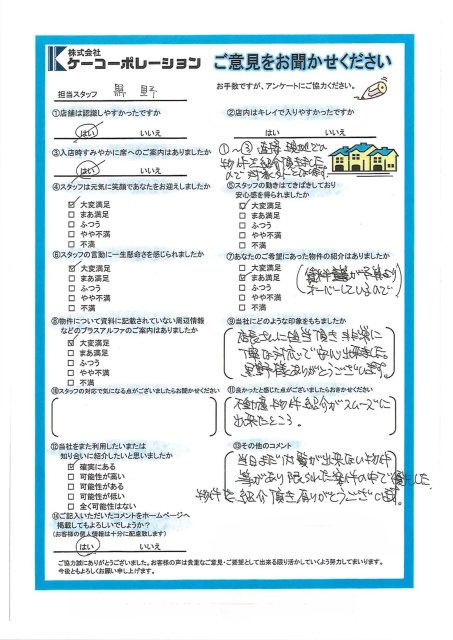 株式会社
ケーコーポレーション
ご意見をお聞かせください
担当スタッフ 黒野
お手数ですが、アンケートにご協力ください。
①店舗は認識しやすかったですか
はい いいえ
②店内はキレイで入りやすかったですか
はい いいえ
③入店時すみやかに席へのご案内はありましたか
はい いいえ
①~③直接現地での
物件ご紹介頂きました
ので対象外と
④スタッフは元気に笑顔であなたをお迎えしましたか
☑ 大変満足
□ まあ満足
□ ふつう
□ やや不満
□ 不満
⑤スタッフの動きはてきぱきしており
安心感を得られましたか
☑ 大変満足
□ まあ満足
□ ふつう
□ やや不満
□ 不満
⑥スタッフの言動に一生懸命さを感じられましたか
☑ 大変満足
□ まあ満足
□ ふつう
□ やや不満
□ 不満
⑦あなたのご希望にあった物件の紹介はありましたか
□ 大変満足
☑ まあ満足
□ ふつう
□ やや不満
□ 不満
が予算より
オーバーしているので
⑧物件について資料に記載されていない周辺情報
などのプラスアルファのご案内はありましたか
☑ 大変満足
□ まあ満足
□ ふつう
□ やや不満
□ 不満
⑨当社にどのような印象をもちましたか
店長さんに担当頂き非常に
丁寧な対応で安心出来ました。
黒野様ありがとうございます。
⑩スタッフの対応で気になる点がございましたらお聞かせください
⑪良かったと感じた点がございましたらおきかせください
不動産物件紹介がスムーズに
出来たところ。
⑫当社をまた利用したいまたは
知り合いに紹介したいと思いましたか
☑ 確実にある
□ 可能性が高い
□ 可能性がある
□ 可能性が低い
□ 全く可能性はない
⑬その他のコメント
当日まだ内覧が出来ない物件
等があり限られた条件の中で
物件をご紹介頂きありがとうございます。
⑭ご記入いただいたコメントをホームページへ
掲載してもよろしいでしょうか?
(お客様の個人情報は十分に配慮致します)
はい いいえ
ご協力誠にありがとうございました。お客様の声は貴重なご意見・ご要望として出来る限り活かしていくよう努力してまいります。
今後ともよろしくお願い申し上げます。